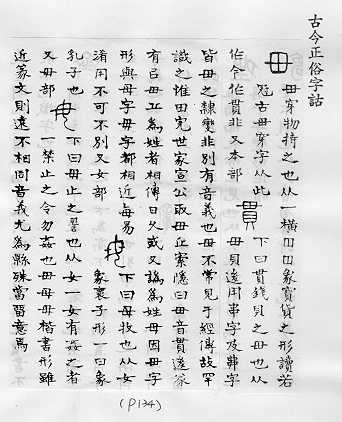 古今正俗字詁
毌
毌穿物持之也从一橫囗囗象寳貨之形讀若
冠古毌穿字从此
作令作貫非又本部
貫
下曰貫錢貝之毌也从
毌貝後用串字及丳字
皆毌之隸變非別有音義也毌不常見于經傳故罕
識之惟田完世家宣公取毌丘索隱曰毌音貫遂
有㠯毌丘爲姓者相傳日久或又譌爲姓母因毌字
形與母字毋字都相近每易
淆用不可不別又女部
母
下曰母牧也从女
象褱子形一曰象
乳子也
又毋部
毋
下曰毋止之䛐也从女一女有姦之者
一禁止之令勿姦也毌母毋楷書形雖
近篆文則遠不相同音義尤爲縣殊當留意焉
(P134)